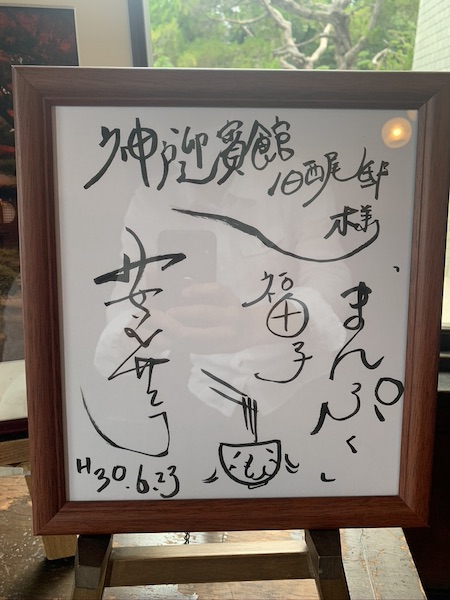 神戸迎賓館
旧西尾邸
様
まんぷく
福子
H30.6.23